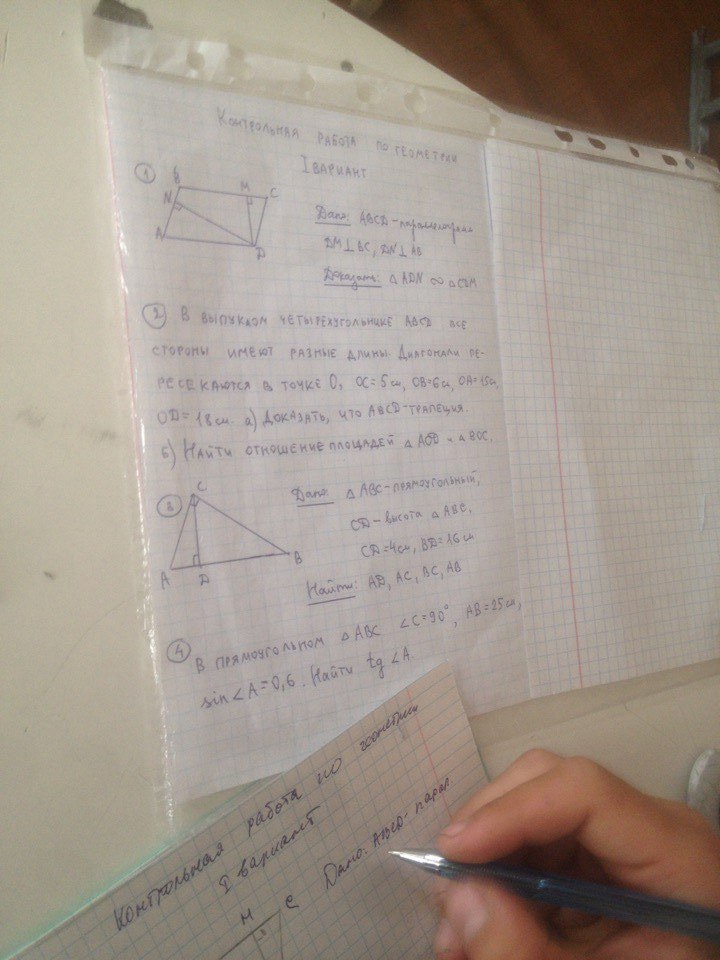 Контрольная работа по геометрии
I вариант
① B M C
N
A D
Дано: ABCD - параллелограмм
DM⊥BC, DN⊥AB
Доказать: △ADN ∞ △CDM
② В выпуклом четырехугольнике ABCD все
стороны имеют разные длины. Диагонали пе-
ресекаются в точке O, OC=5см, OB=6см, OA=15см,
OD=18см. а) Доказать, что ABCD-трапеция.
б) Найти отношение площадей △AOD и △BOC.
③ C
A D B
Дано: △ABC-прямоугольный,
CD-высота △ABC,
CD=4см, BD=16см
Найти: AD, AC, BC, AB
④ В прямоугольном △ABC ∠C=90°, AB=25см,
sin∠A=0,6. Найти tg∠A.
Контрольная работа по геометрии
I вариант
M C
Дано: ABCD- парал